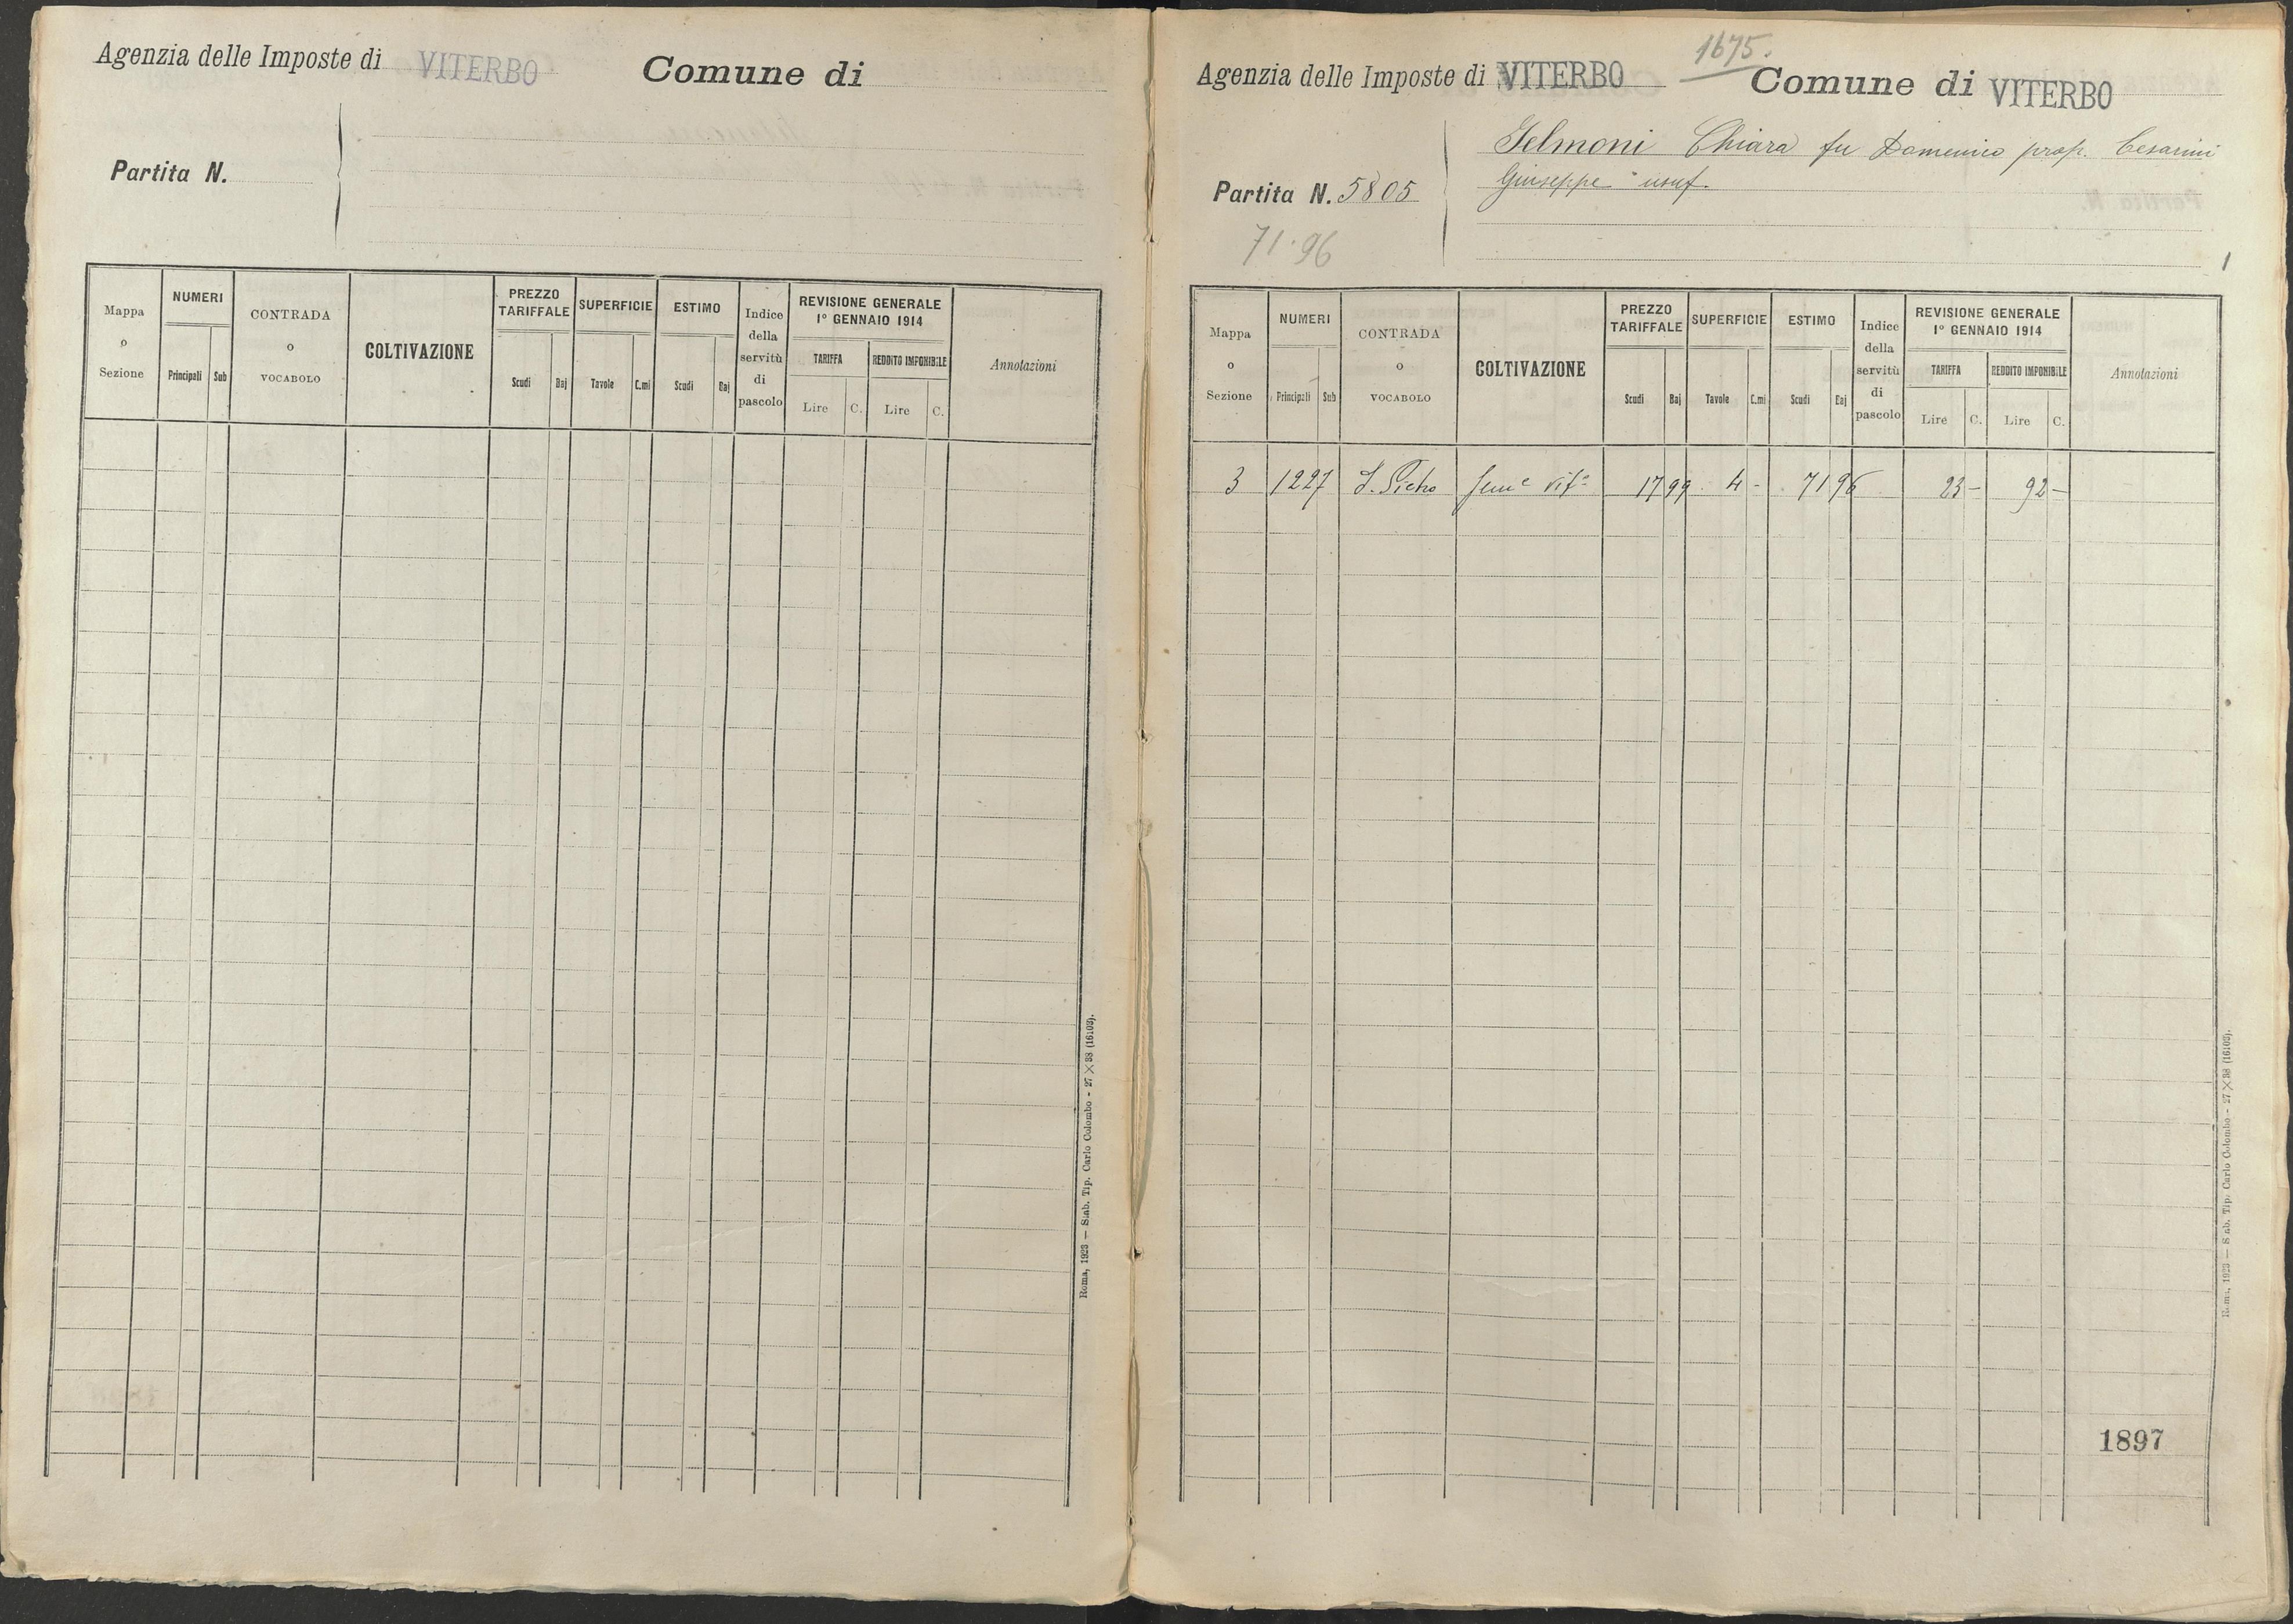 Agenzia delle Imposte di VITERBO Comune di
Partita N.
Mappa o Sezione NUMERI Principali Sub CONTRADA o VOCABOLO COLTIVAZIONE PREZZO TARIFFALE Scudi Baj SUPERFICIE Tavole C.mi ESTIMO Scudi Baj Indice della servitù di pascolo REVISIONE GENERALE 1° GENNAIO 1914 TARIFFA Lire C. REDDITO IMPONIBILE Lire C. Annotazioni
Roma, 1923 — Stab. Tip. Carlo Colombo - 27 × 38 (16103).
1675.
Agenzia delle Imposte di VITERBO Comune di VITERBO
Chiara fu Domenico prop. Cesarini
Giuseppe usuf.
Partita N. 5805
71.96
Mappa o Sezione NUMERI Principali Sub CONTRADA o VOCABOLO COLTIVAZIONE PREZZO TARIFFALE Scudi Baj SUPERFICIE Tavole C.mi ESTIMO Scudi Baj Indice della servitù di pascolo REVISIONE GENERALE 1° GENNAIO 1914 TARIFFA Lire C. REDDITO IMPONIBILE Lire C. Annotazioni
3 1227 S. Pietro 17 99 4 - 71 96 23 - 92 -
Roma, 1923 — Stab. Tip. Carlo Colombo - 27 × 38 (16103).
1897